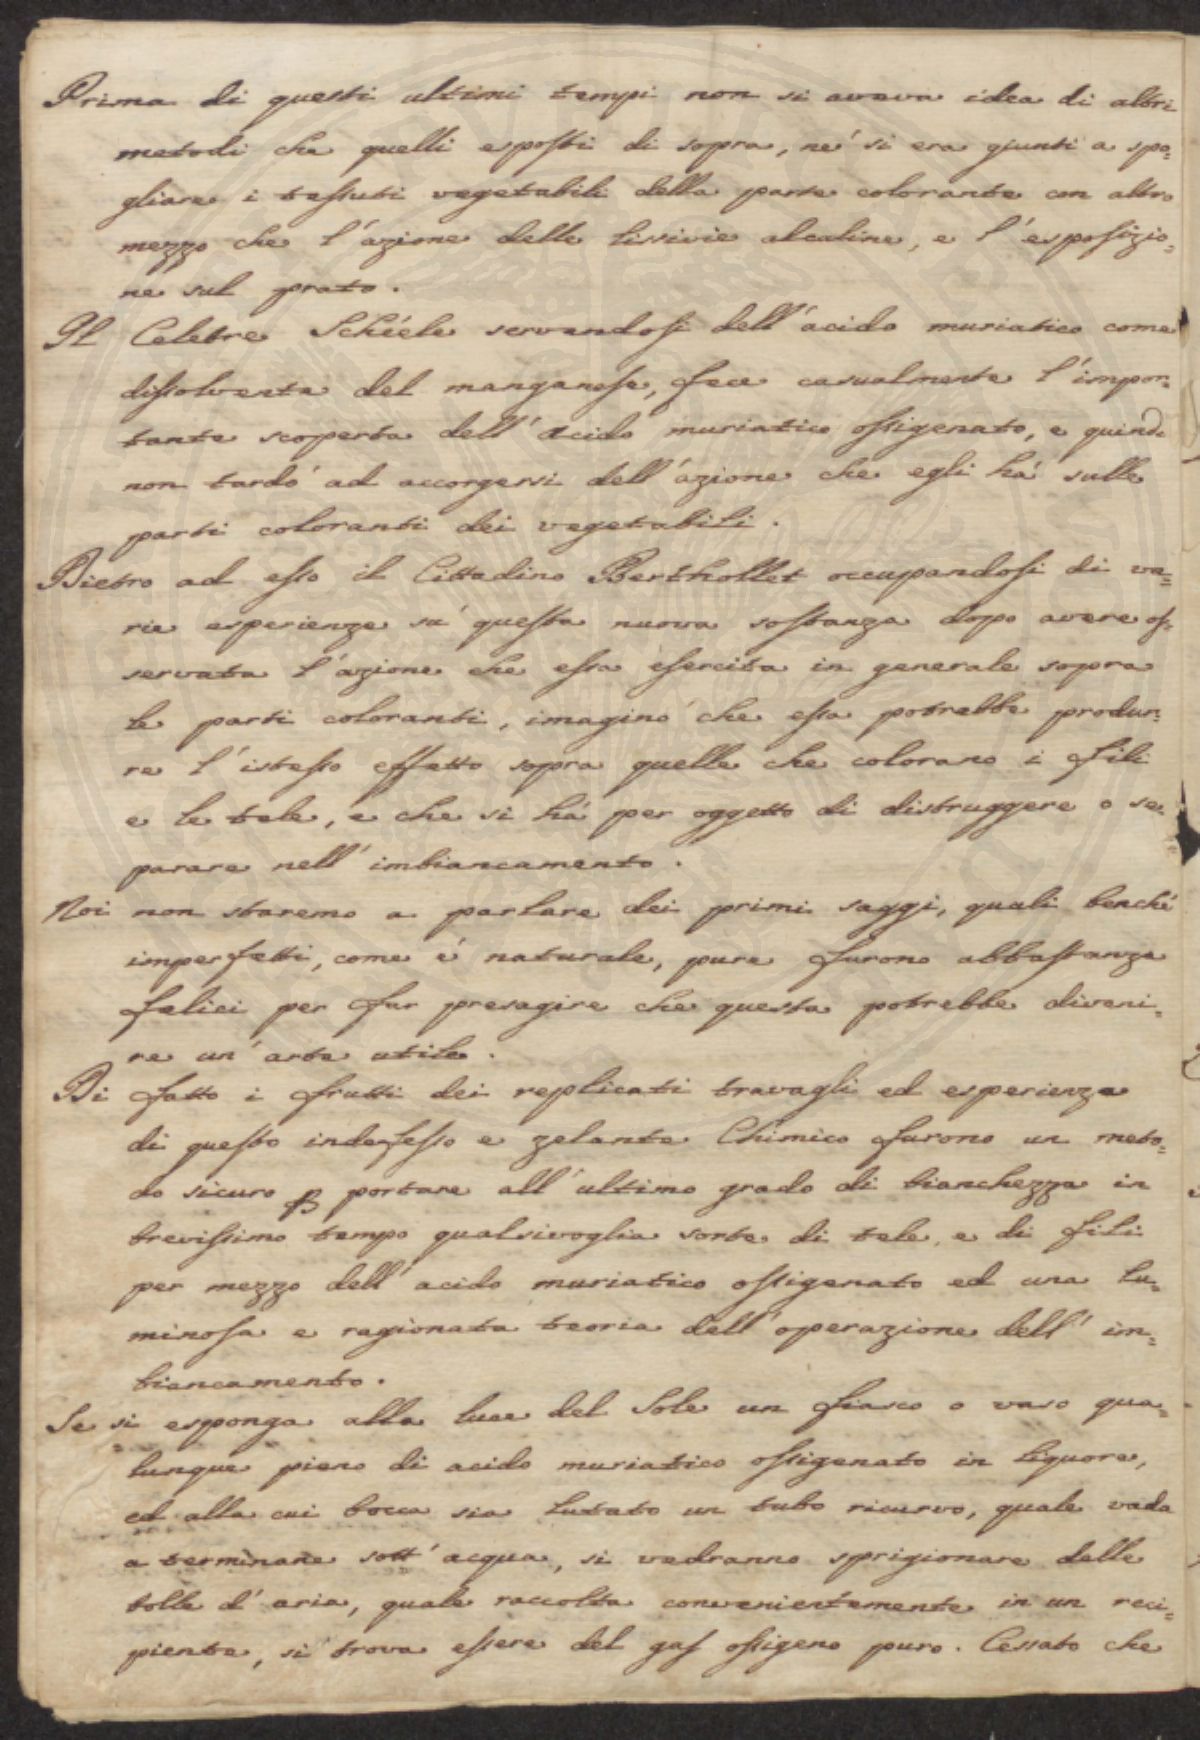 Prima di questi ultimi tempi non si aveva idea di altri
metodi che quelli esposti di sopra, né si era giunti a spo=
gliare i tessuti vegetabili della parte colorante con altro
mezzo che l'azione delle lissivie alcaline, e l'esposizio=
ne sul prato.
Il Celebre Schéele servendosi dell'acido muriatico come
dissolvente del manganese, fece casualmente l'impor=
tante scoperta dell'acido muriatico ossigenato, e quindi
non tardò ad accorgersi dell'azione che egli há sulle
parti coloranti dei vegetabili.
Dietro ad esso il Cittadino Berthollet occupandosi di va=
rie esperienze sú questa nuova sostanza dopo avere os=
servata l'azione che essa esercita in generale sopra
le parti coloranti, imaginò che essa potrebbe produr=
re l'istesso effetto sopra quelle che colorano i fili
e le tele, e che si há per oggetto di distruggere o se=
parare nell'imbiancamento.
Noi non staremo a parlare dei primi saggi, quali benché
imperfetti, come é naturale, pure furono abbastanza
felici per far presagire che questa potrebbe diveni=
re un'arte utile.
Di fatto i frutti dei replicati travagli ed esperienze
di questo indefesso e zelante Chimico furono un meto=
do sicuro ꝑ portare all'ultimo grado di bianchezza in
brevissimo tempo qualsivoglia sorte di tele, e di fili
per mezzo dell'acido muriatico ossigenato ed una lu=
minosa e ragionata teoria dell'operazione dell'im=
biancamento.
Se si esponga alla luce del Sole un fiasco o vaso qua=
lunque pieno di acido muriatico ossigenato in liquore,
ed alla cui bocca sia lutato un tubo ricurvo, quale vada
a terminare sott'acqua, si vedranno sprigionare delle
bolle d'aria, quale raccolta convenientemente in un reci=
piente, si trova essere del gas ossigeno puro. Cessato che